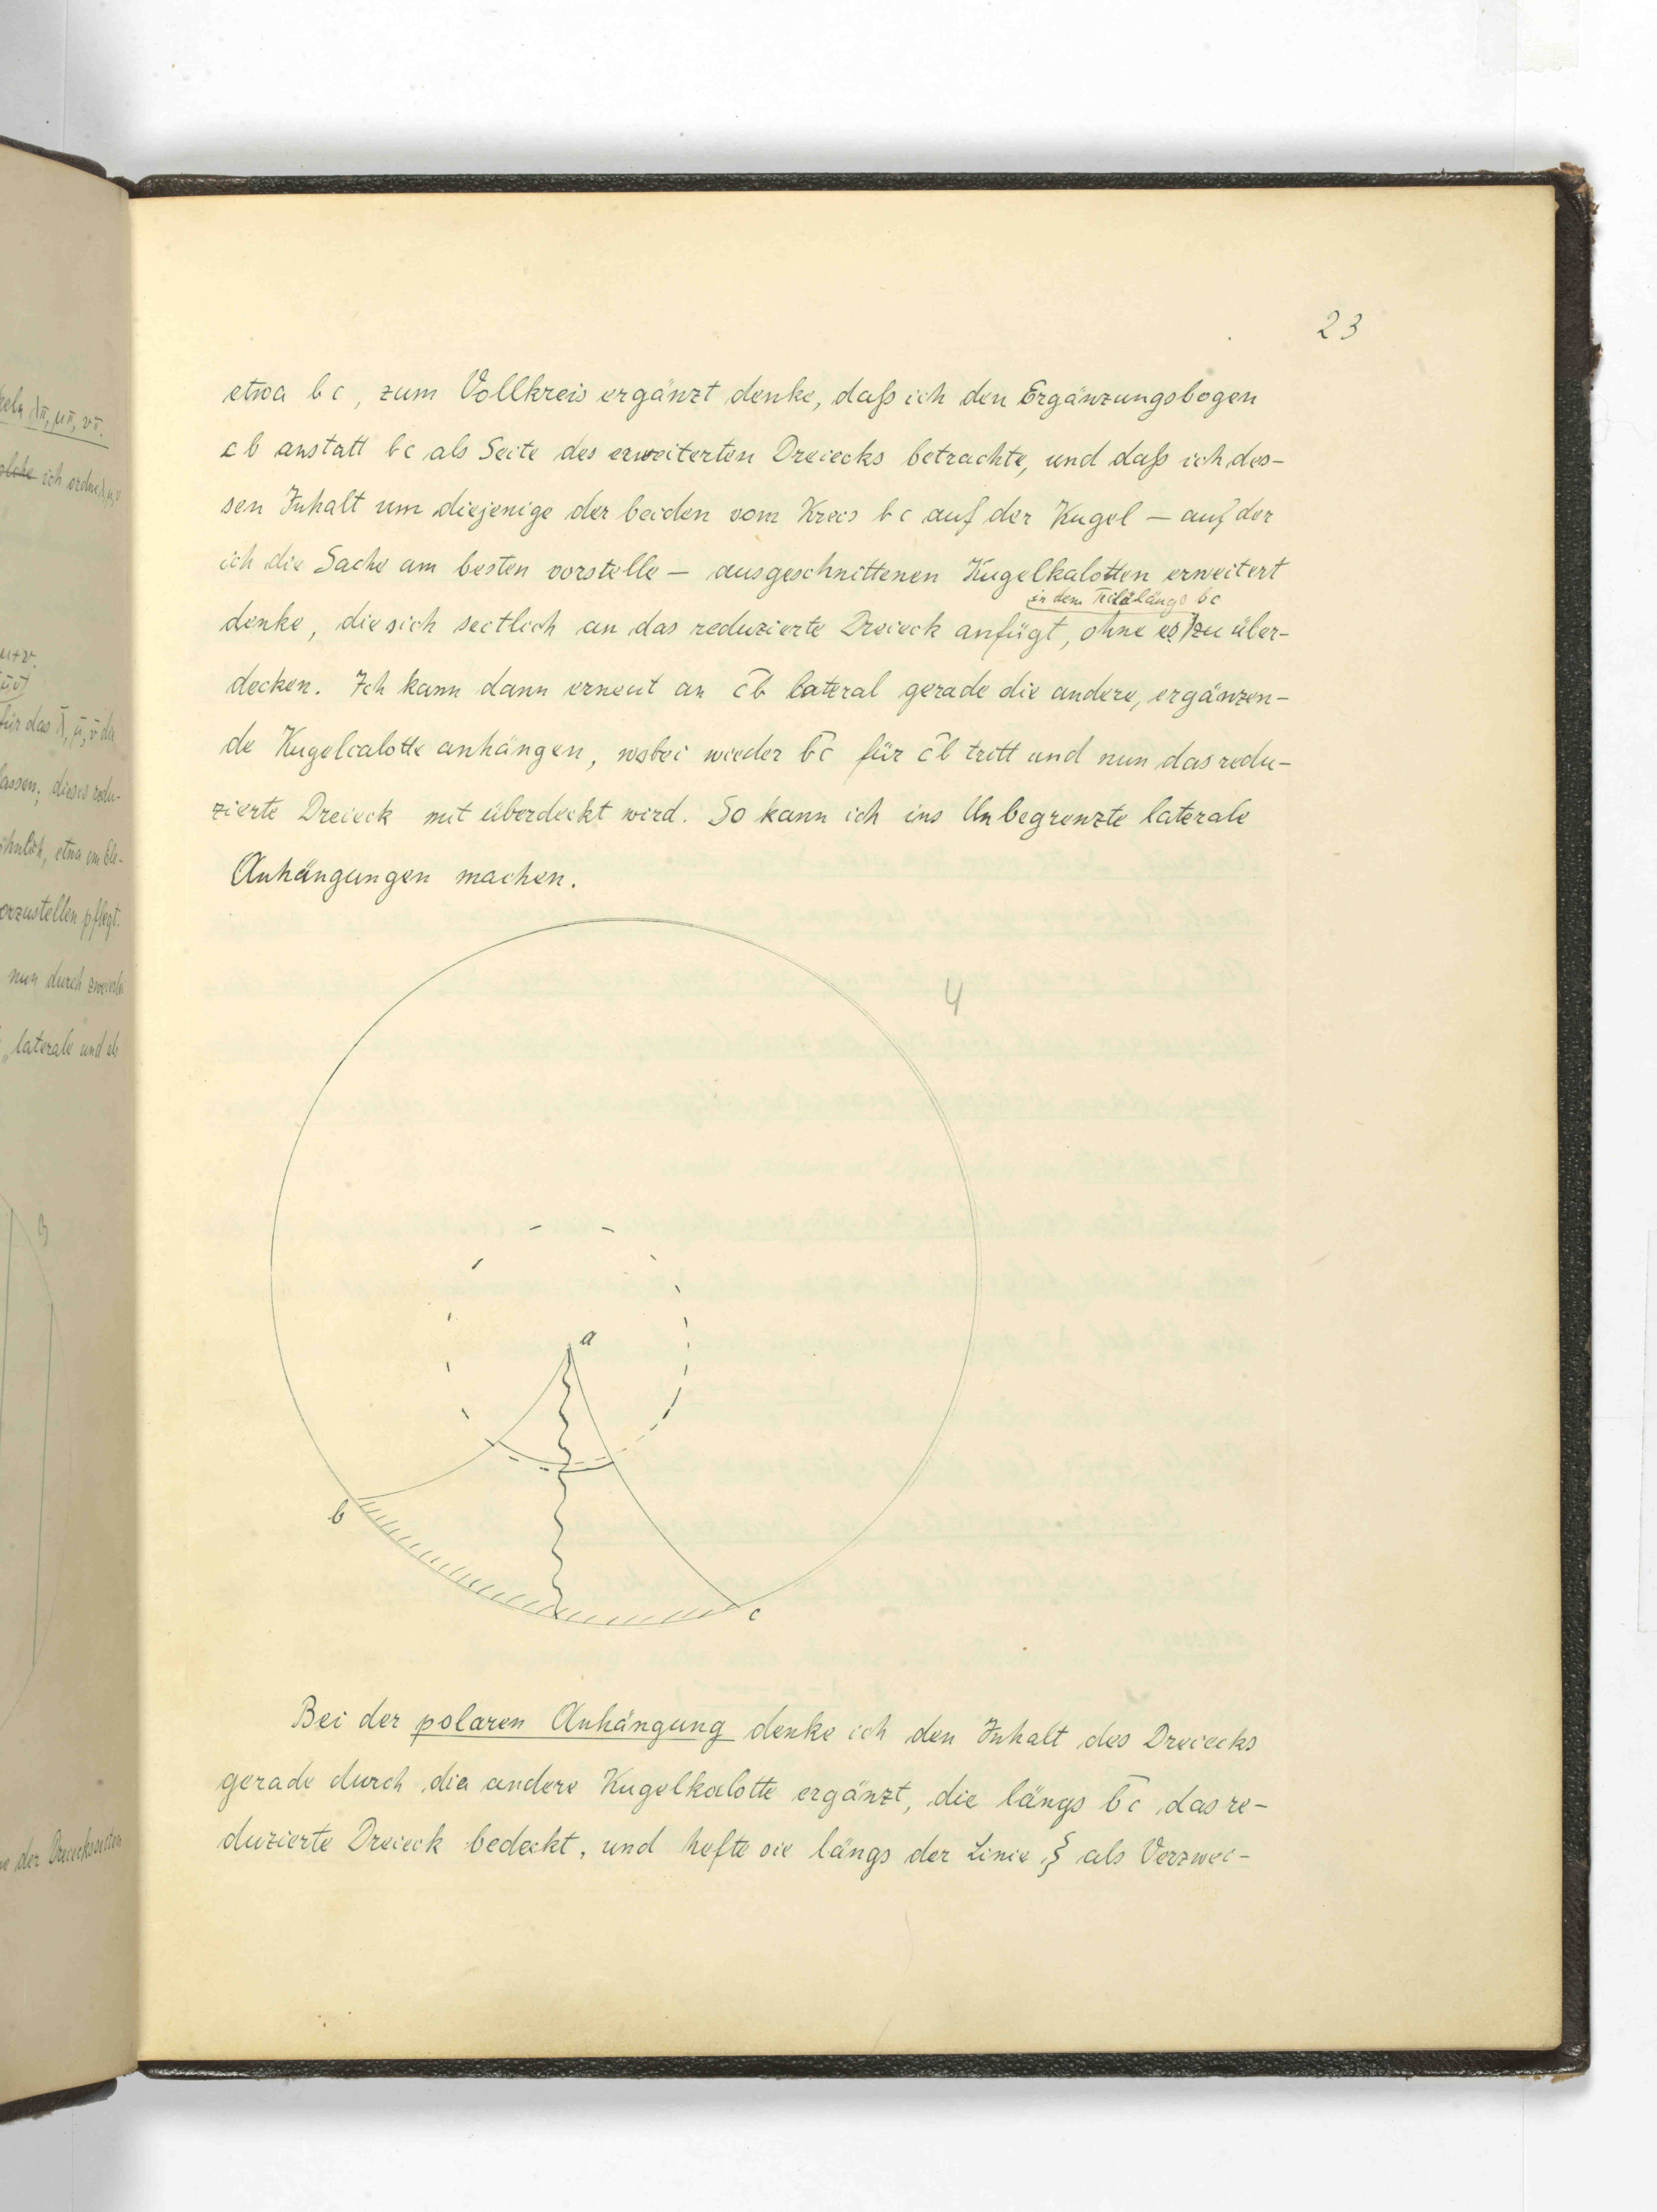 23
etwa bc, zum Vollkreis ergänzt denke, daß ich den Ergänzungsbogen
cb anstatt bc als Seite des erweiterten Dreiecks betrachte, und daß ich des-
sen Inhalt um diejenige der beiden vom Kreis bc auf der Kugel — auf der
ich die Sache am besten vorstelle — ausgeschnittenen Kugelkalotten erweitert
in dem Teile längs bc
denke, die sich seitlich an das reduzierte Dreieck anfügt, ohne es zu über-
decken. Ich kann dann erneut an c̄b̄ lateral gerade die andere, ergänzen-
de Kugelcalotte anhängen, wobei wieder b̄c̄ für c̄b̄ tritt und nun das redu-
zierte Dreieck mit überdeckt wird. So kann ich ins Unbegrenzte laterale
Anhängungen machen.
4
a
b
c
Bei der polaren Anhängung denke ich den Inhalt des Dreiecks
gerade durch die andere Kugelkalotte ergänzt, die längs b̄c̄ das re-
duzierte Dreieck bedeckt, und hefte sie längs der Linie ξ als Verzwei-
ich ordne
für das λ̄, μ̄, ν̄ da
lassen; dieses redu-
ähnlich, etwa im Ele-
vorzustellen pflegt.
nun durch zweierlei
„laterale und als
3
der Dreiecksseiten